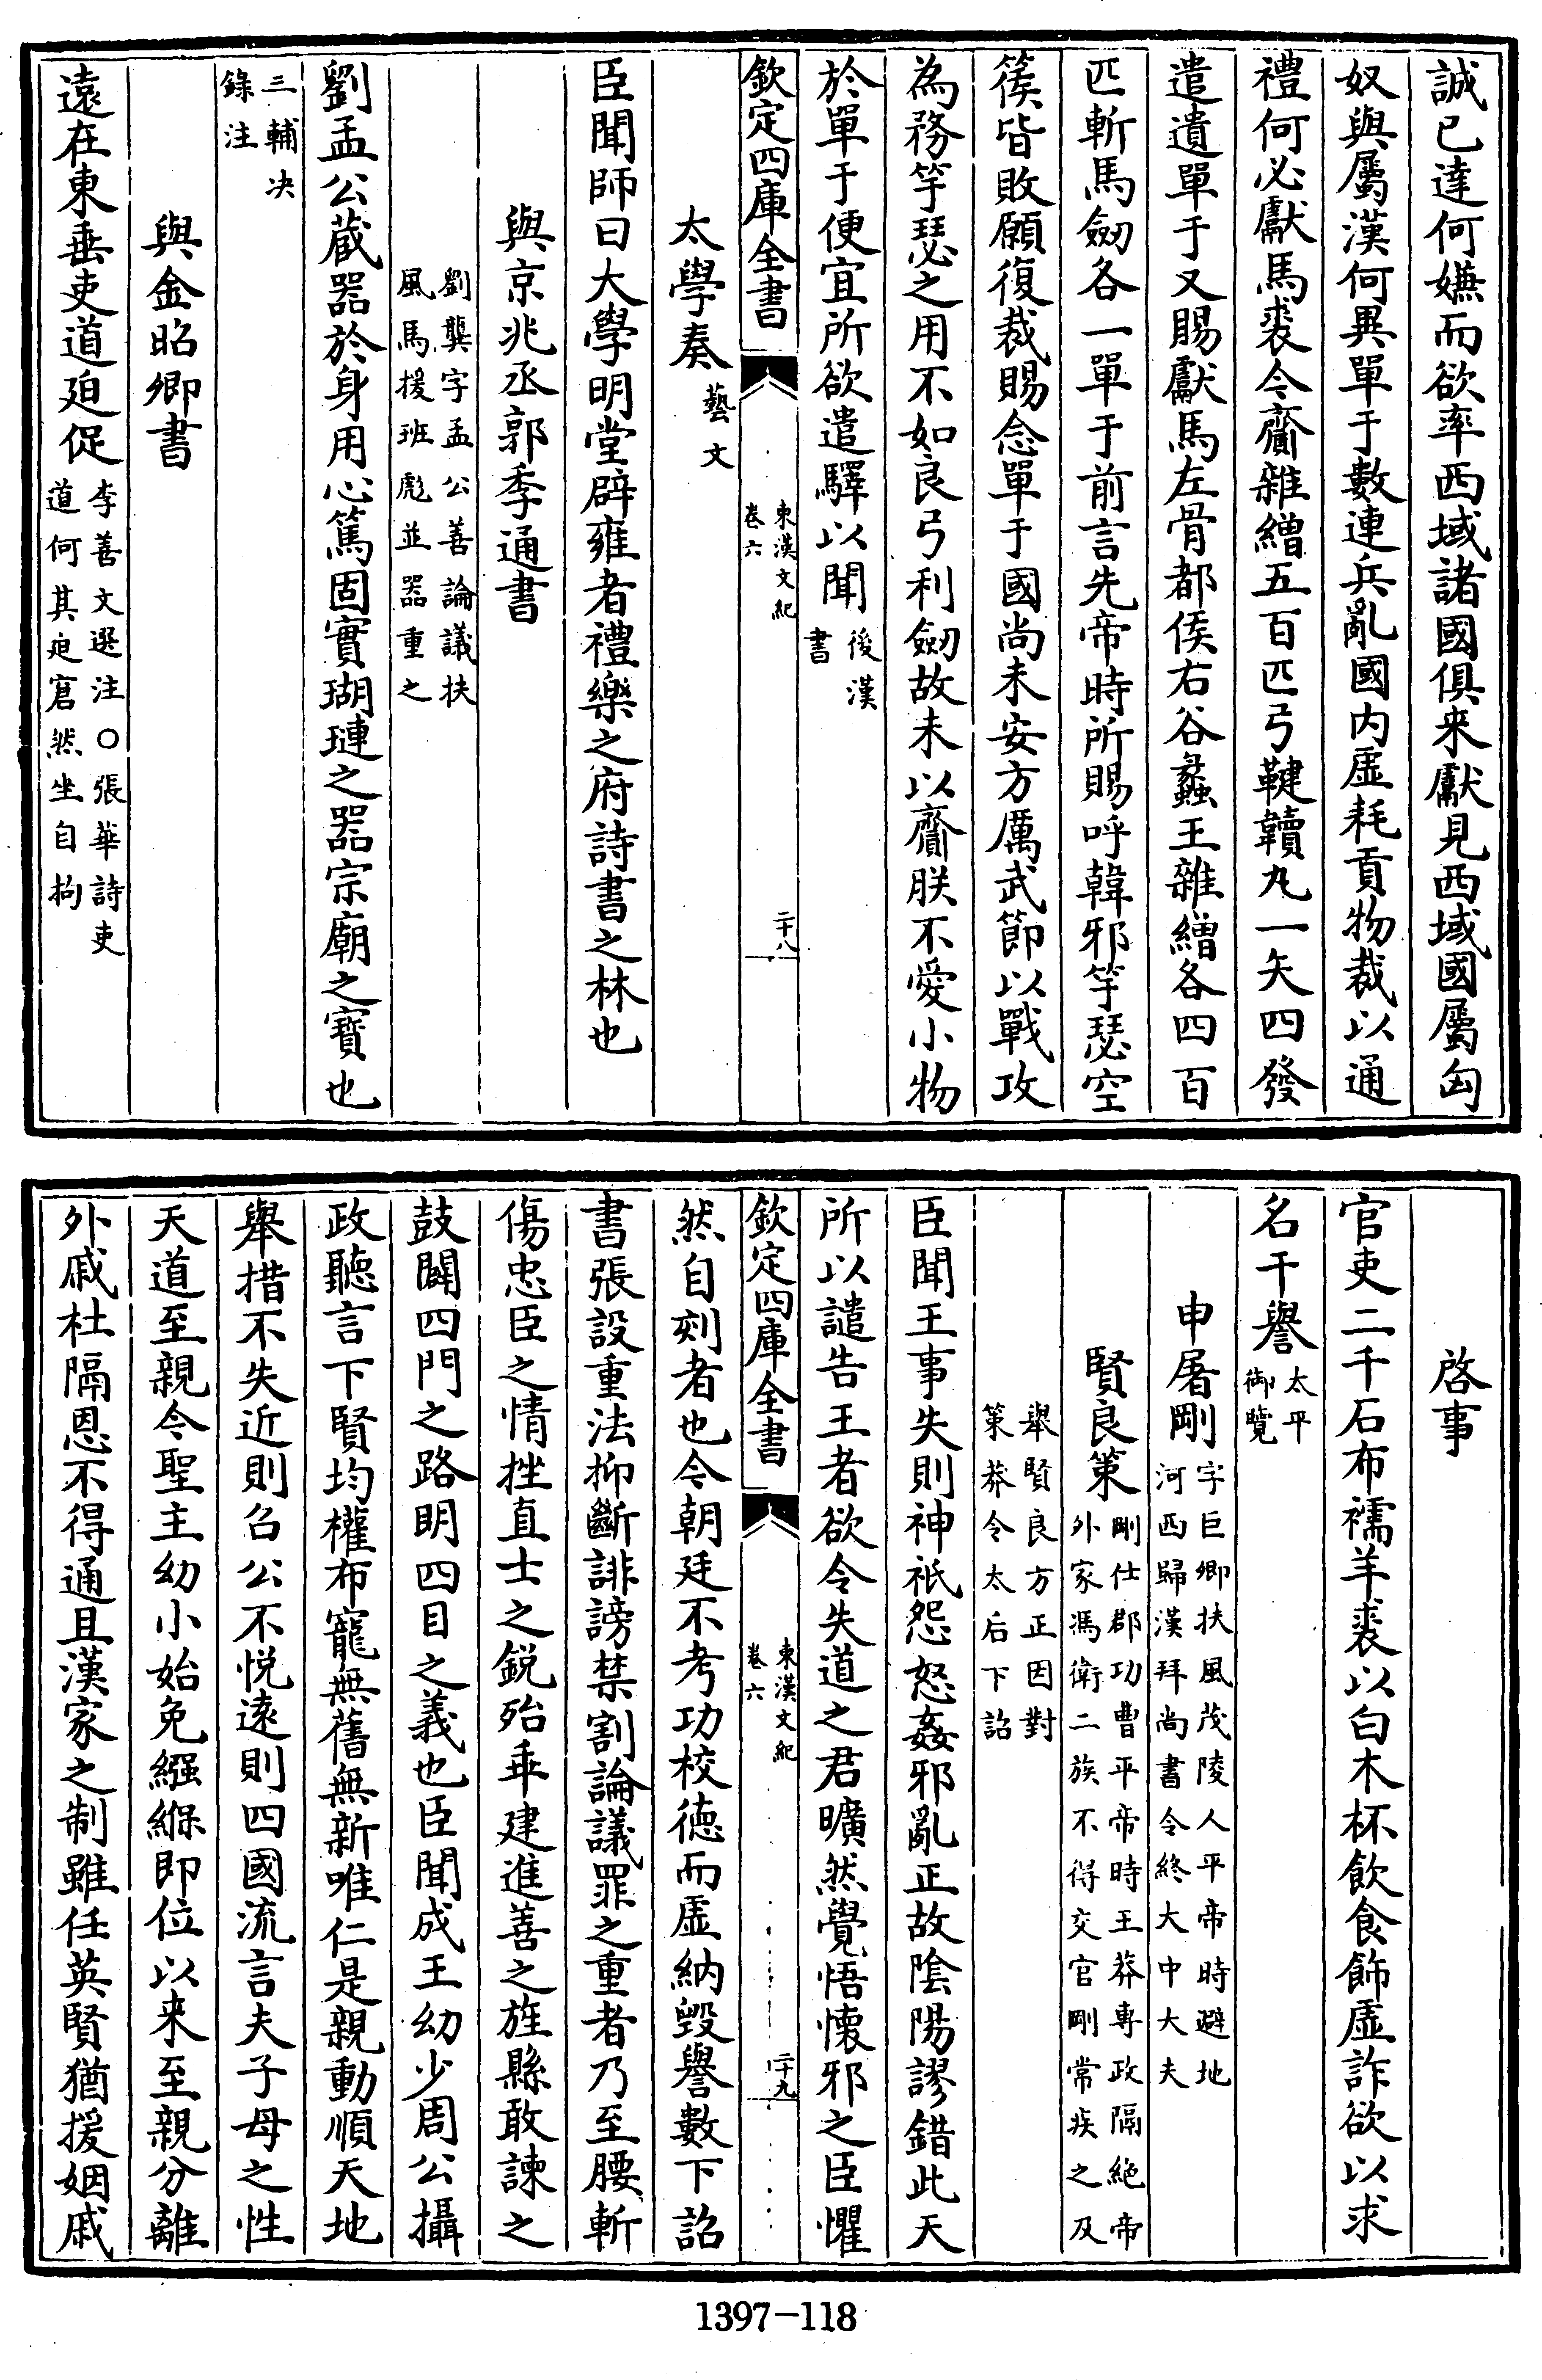 誠已達何嫌而欲率西域諸國俱来獻見西域國屬匈
奴與屬漢何異單于數連兵亂國内虚耗貢物裁以通
禮何必獻馬裘令齎雜繒五百匹弓鞬韥丸一矢四發
遣遺單于又賜獻馬左骨都侯右谷蠡王雜繒各四百
匹斬馬劒各一單于前言先帝時所賜呼韓邪竽瑟空
篌皆敗願復裁賜念單于國尚未安方厲武節以戰攻
為務竽瑟之用不如良弓利劒故未以齎朕不愛小物
於單于便宜所欲遣驛以聞後漢
書
欽定四庫全書
東漢文紀
卷六
二十八
太學奏藝文
臣聞師曰大學明堂辟雍者禮樂之府詩書之林也
與京兆丞郭季通書
劉龔字孟公善論議扶
風馬援班彪並器重之
劉孟公蔵器於身用心篤固實瑚璉之器宗廟之寳也
三輔决
錄注
與金昭卿書
遠在東垂吏道廹促李善文選注〇張華詩吏
道何其廹窘然坐自拘
啓事
官吏二千石布襦羊裘以白木杯飲食飾虚詐欲以求
名干譽太平
御覽
申屠剛字巨卿扶風茂陵人平帝時避地
河西歸漢拜尚書令終大中大夫
賢良策剛仕郡功曹平帝時王莽專政隔絶帝
外家馮衛二族不得交官剛常疾之及
舉賢良方正因對
策莽令太后下詔
臣聞王事失則神祇怨怒姦邪亂正故隂陽謬錯此天
所以譴告王者欲令失道之君曠然覺悟懐邪之臣懼
欽定四庫全書
東漢文紀
卷六
二十九
然自刻者也今朝廷不考功校徳而虚納毁譽數下詔
書張設重法抑斷誹謗禁割論議罪之重者乃至腰斬
傷忠臣之情挫直士之鋭殆乖建進善之旌縣敢諫之
鼓闢四門之路明四目之義也臣聞成王幼少周公攝
政聽言下賢均權布寵無舊無新唯仁是親動順天地
舉措不失近則召公不悦遠則四國流言夫子母之性
天道至親今聖主幼小始免繈緥即位以来至親分離
外戚杜隔恩不得通且漢家之制雖任英賢猶援姻戚
1397-118